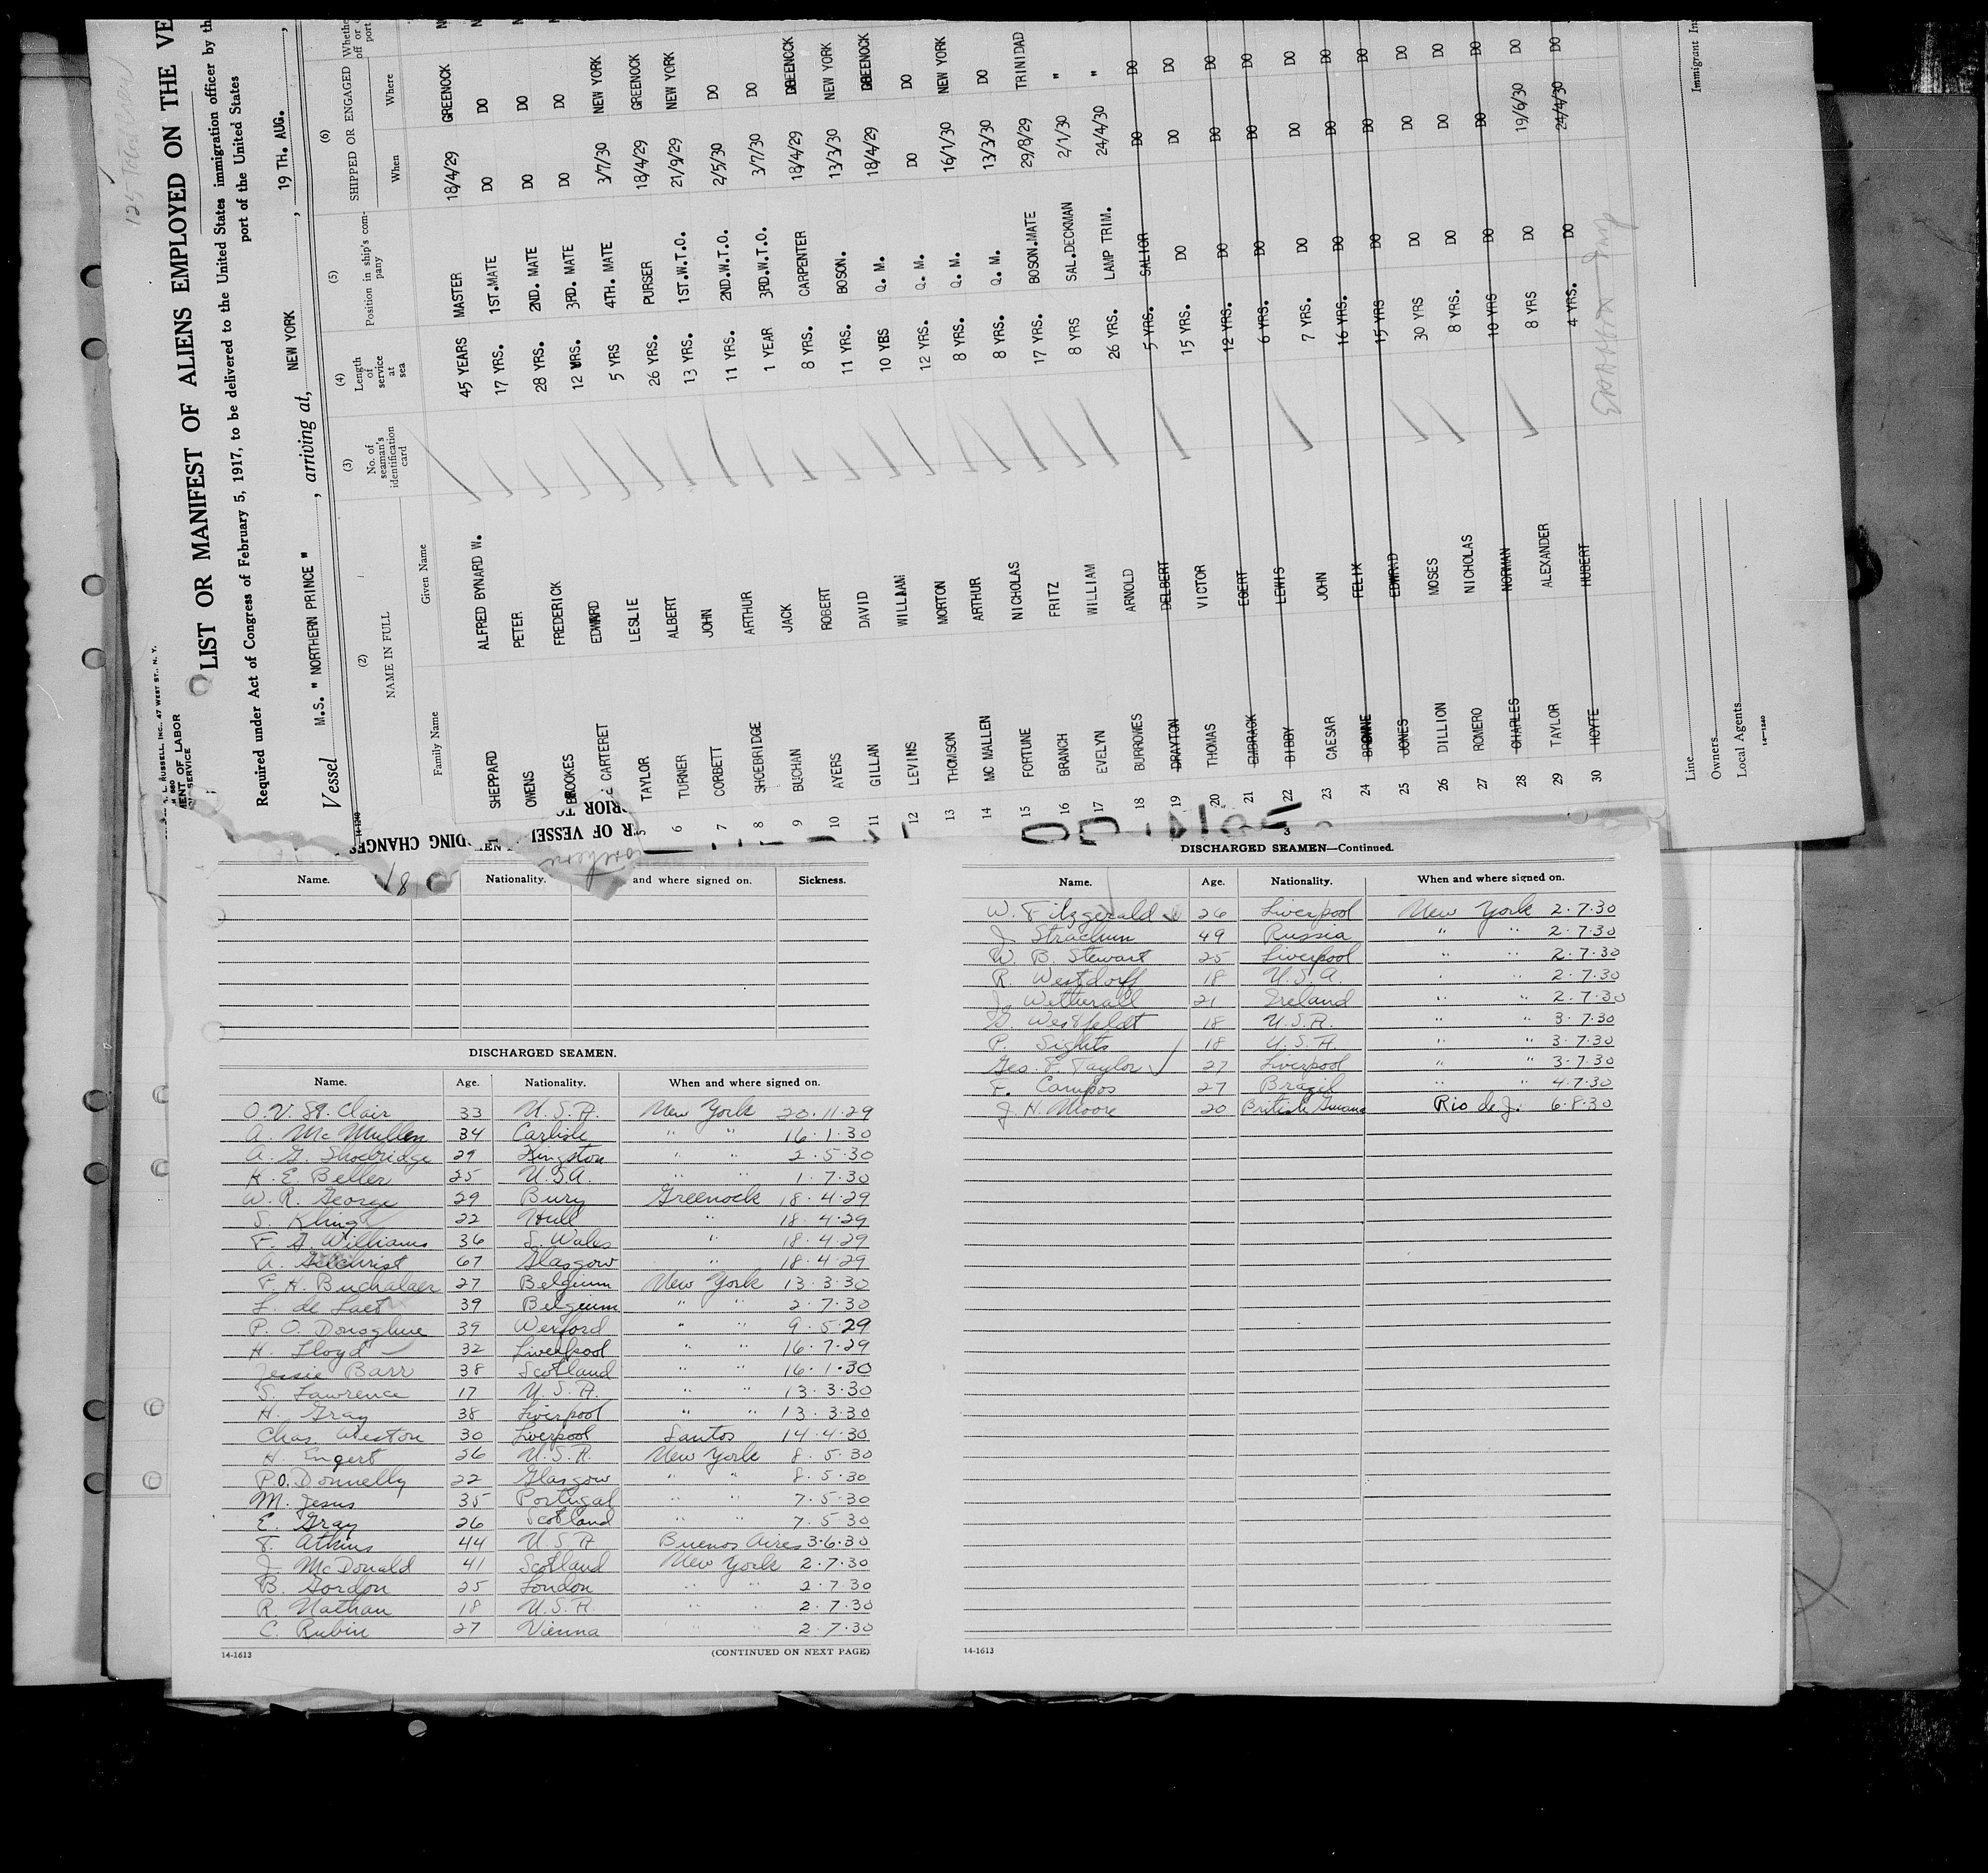 LIST OR MANIFEST OF ALIENS EMPLOYED ON THE VE
Required under Act of Congress of February 5, 1917, to be delivered to the United States immigration officer by th
port of the United States
Vessel M.S. " NORTHERN PRINCE " , arriving at, NEW YORK , 19 TH. AUG. ,
(2) (3) (4) (5) (6)
NAME IN FULL No. of seaman's identification card Length of service at sea Position in ship's company SHIPPED OR ENGAGED
Family Name Given Name When Where
SHEPPARD ALFRED BYNARD W. 45 YEARS MASTER 18/4/29 GREENOCK
OWENS PETER 17 YRS. 1ST.MATE DO DO
BROOKES FREDERICK 28 YRS. 2ND. MATE DO DO
CARTERET EDWARD 12 YRS. 3RD. MATE DO DO
5 TAYLOR LESLIE 5 YRS 4TH. MATE 3/7/30 NEW YORK
6 TURNER ALBERT 26 YRS. PURSER 18/4/29 GREENOCK
7 CORBETT JOHN 13 YRS. 1ST.W.T.O. 21/9/29 NEW YORK
8 SHOEBRIDGE ARTHUR 11 YRS. 2ND.W.T.O. 2/5/30 DO
9 BUCHAN JACK 1 YEAR 3RD.W.T.O. 3/7/30 DO
10 AYERS ROBERT 8 YRS. CARPENTER 18/4/29 GREENOCK
11 GILLAN DAVID 11 YRS. BOSON. 13/3/30 NEW YORK
12 LEVINS WILLIAM 10 YBS Q. M. 18/4/29 GREENOCK
13 THOMSON MORTON 12 YRS. Q. M. DO DO
14 MC MALLEN ARTHUR 8 YRS. Q. M. 16/1/30 NEW YORK
15 FORTUNE NICHOLAS 8 YRS. Q. M. 13/3/30 DO
16 BRANCH FRITZ 17 YRS. BOSON.MATE 29/8/29 TRINIDAD
17 EVELYN WILLIAM 8 YRS SAL.DECKMAN 2/1/30 "
18 BURROWES ARNOLD 26 YRS. LAMP TRIM. 24/4/30 "
19 DRAYTON DELBERT 5 YRS. SALIOR DO DO
20 THOMAS VICTOR 15 YRS. DO DO DO
21 EMBRACK EGERT 12 YRS. DO DO DO
22 BIBBY LEWIS 6 YRS. DO DO DO
23 CAESAR JOHN 7 YRS. DO DO DO
24 BROWNE FELIX 16 YRS. DO DO DO
25 JONES EDWRAD 15 YRS DO DO DO
26 DILLION MOSES 30 YRS DO DO DO
27 ROMERO NICHOLAS 8 YRS. DO DO DO
28 CHARLES NORMAN 10 YRS DO DO DO
29 TAYLOR ALEXANDER 8 YRS DO 19/6/30 DO
30 HOYTE HUBERT 4 YRS. DO 24/4/30 DO
Line
Owners
Local Agents
14-1240
Immigrant In
Name. Nationality. and where signed on. Sickness.
DISCHARGED SEAMEN.
Name. Age. Nationality. When and where signed on.
O. V. St. Clair 33 U.S.A. New York 20.11.29
A. Mc Mullen 34 Carlisle " " 16.1.30
A. G. Shoebridge 29 Kingston " " 2.5.30
K. E. Beller 25 U.S.A. " " 1.7.30
W. R. George 29 Bury Greenock 18.4.29
S. Kling 22 Hull " 18.4.29
F. G. Williams 36 S. Wales " 18.4.29
A. Gilchrist 67 Glasgow " 18.4.29
F. H. Buchalaer 27 Belgium New York 13.3.30
F. de Laet 39 Belgium " " 2.7.30
P. O. Donoghue 39 Wexford " " 9.5.29
H. Lloyd 32 Liverpool " " 16.7.29
Jessie Barr 38 Scotland " " 16.1.30
S. Lawrence 17 U.S.A. " " 13.3.30
H. Gray 38 Liverpool " " 13.3.30
Chas. Weston 30 Liverpool Santos 14.4.30
H. Engert 26 U.S.A. New York 8.5.30
P.O. Donnelly 22 Glasgow " " 8.5.30
M. Jesus 35 Portugal " " 7.5.30
E. Gray 26 Scotland " " 7.5.30
T. Atkins 44 U.S.A Buenos Aires 3.6.30
J. McDonald 41 Scotland New York 2.7.30
B. Gordon 25 London " " 2.7.30
R. Nathan 18 U.S.A. " " 2.7.30
C. Rubin 27 Vienna " " 2.7.30
14-1613 (CONTINUED ON NEXT PAGE)
3
DISCHARGED SEAMEN—Continued.
Name. Age. Nationality. When and where signed on.
W. Fitzgerald 26 Liverpool New York 2.7.30
J. Strachun 49 Russia " " 2.7.30
W. B. Stewart 25 Liverpool " " 2.7.30
R. Westdorff 18 U.S.A. " " 2.7.30
J. Witherall 21 Ireland " " 2.7.30
G. Westfeldt 18 U.S.A. " " 3.7.30
P. Sights 18 U.S.A. " " 3.7.30
Geo. F. Taylor 27 Liverpool " " 3.7.30
F. Campos 27 Brazil " " 4.7.30
J. H. Moore 20 British Guiana Rio de J. 6.8.30
14-1613